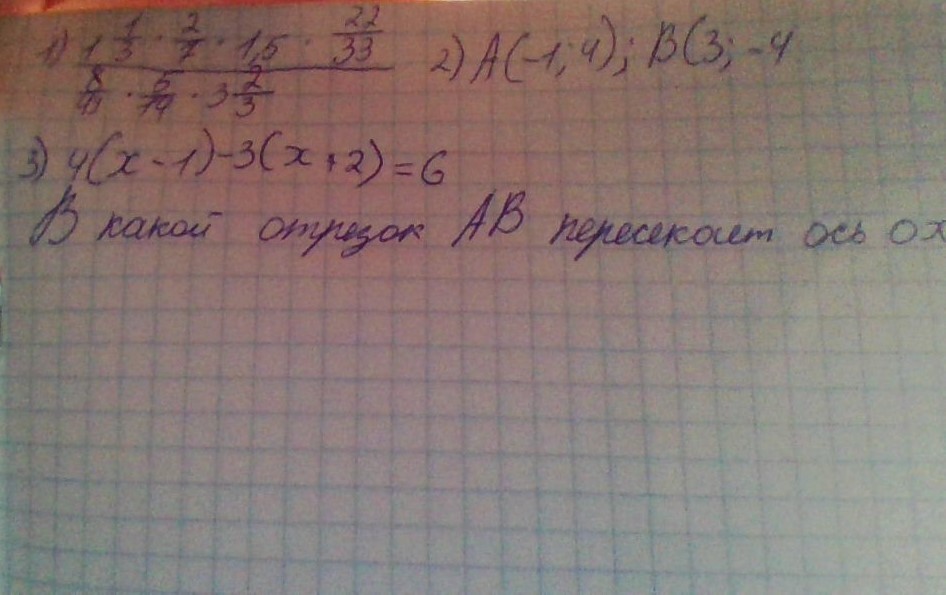 1) (1 1/3 · 2/7 · 1,5 · 22/33) / (8/11 · 5/14 · 3 2/3) 2) A(-1; 4); B(3; -4
3) 4(x - 1) - 3(x + 2) = 6
В какой отрезок AB пересекает ось ox